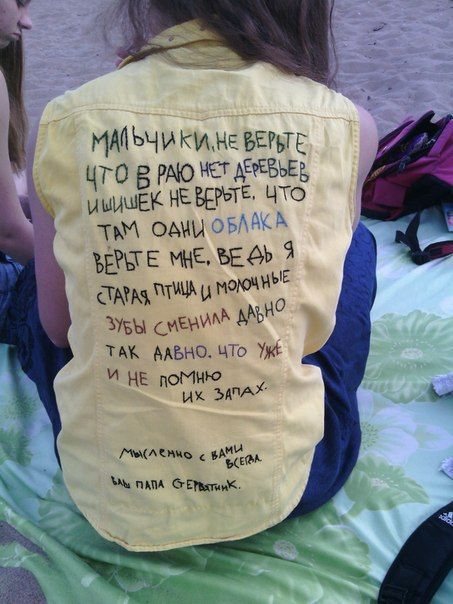 МАЛЬЧИКИ, НЕ ВЕРЬТЕ
ЧТО В РАЮ НЕТ ДЕРЕВЬЕВ
И ШИШЕК НЕ ВЕРЬТЕ, ЧТО
ТАМ ОДНИ ОБЛАКА
ВЕРЬТЕ МНЕ, ВЕДЬ Я
СТАРАЯ ПТИЦА И МОЛОЧНЫЕ
ЗУБЫ СМЕНИЛА ДАВНО
ТАК ДАВНО. ЧТО УЖЕ
И НЕ ПОМНЮ
ИХ ЗАПАХ.
МЫСЛЕННО С ВАМИ
ВСЕГДА.
ВАШ ПАПА СТЕРВЯТНИК.